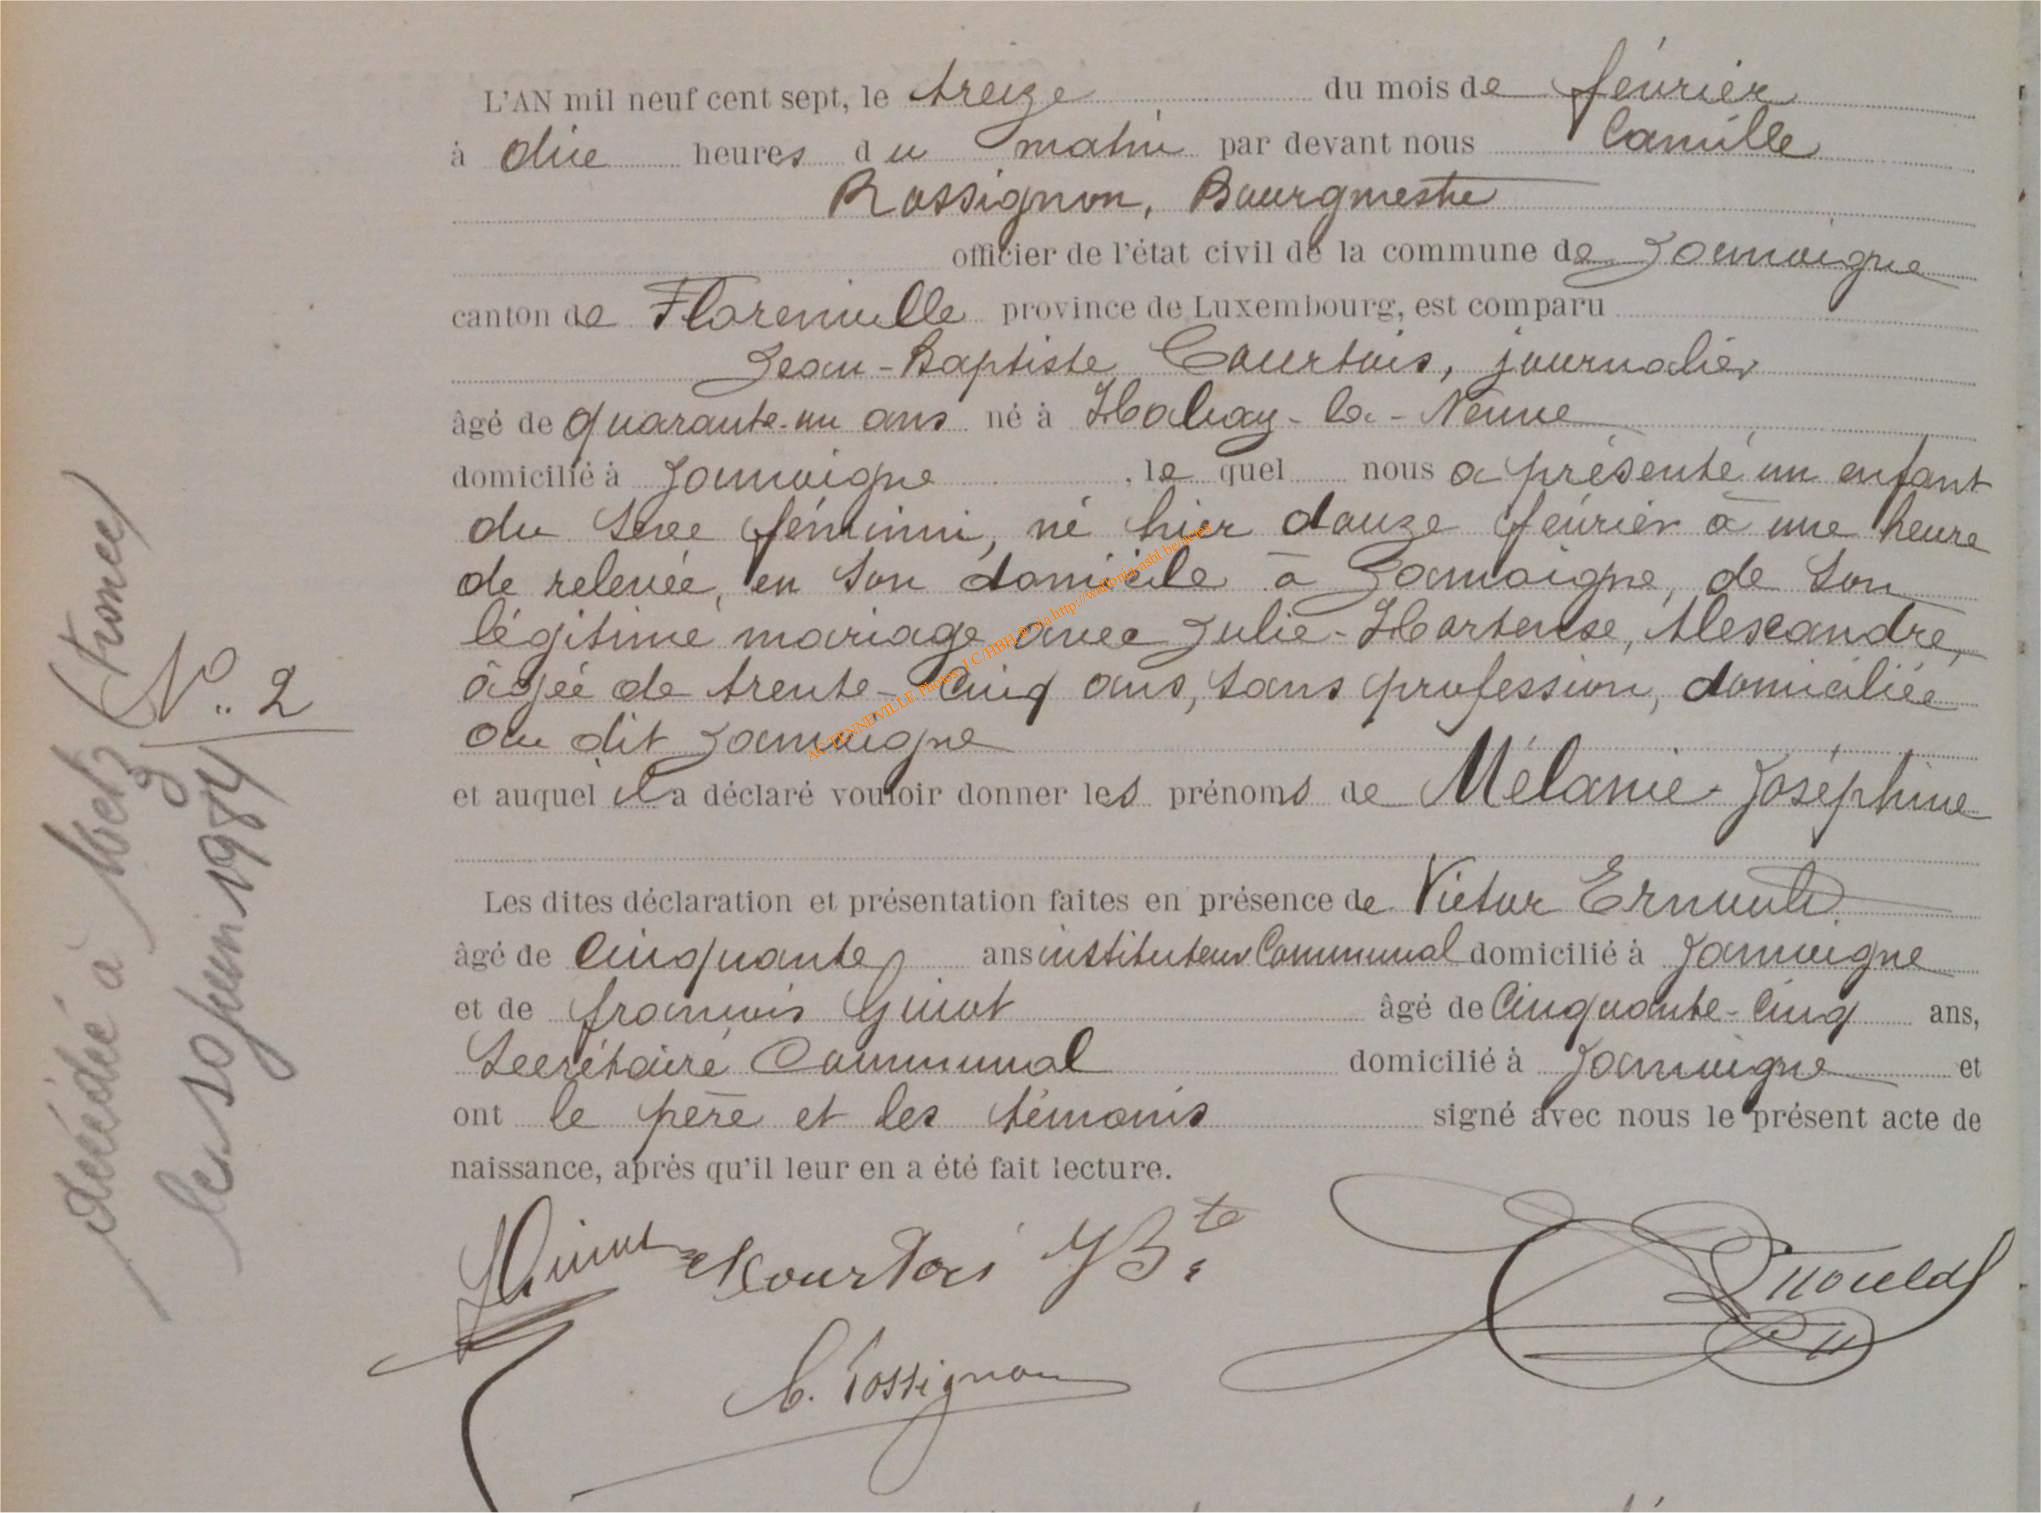 L'AN mil neuf cent sept, le treize du mois de février
à dix heures du matin par devant nous Camille
Rossignon, Bourgmestre
officier de l'état civil de la commune de Jamoigne
canton de Florenville province de Luxembourg, est comparu
Jean-Baptiste Courtois, journalier
âgé de quarante-un ans né à Habay-la-Neuve
domicilié à Jamoigne, le quel nous a présenté un enfant
du sexe féminin, né hier douze février à une heure
de relevée, en son domicile à Jamoigne, de son
légitime mariage avec Julie-Hortense, Alexandre,
âgée de trente-cinq ans, sans profession, domiciliée
au dit Jamoigne
et auquel il a déclaré vouloir donner les prénoms de Mélanie-Joséphine
Les dites déclaration et présentation faites en présence de Victor
âgé de cinquante ans instituteur Communal domicilié à Jamoigne
et de françois Guiot âgé de Cinquante-cinq ans,
Secrétaire Communal domicilié à Jamoigne et
ont le père et les témoins signé avec nous le présent acte de
naissance, après qu'il leur en a été fait lecture.
Courtois J Bte
C. Rossignon
N° 2
décédée à Metz (France)
le juin 1984